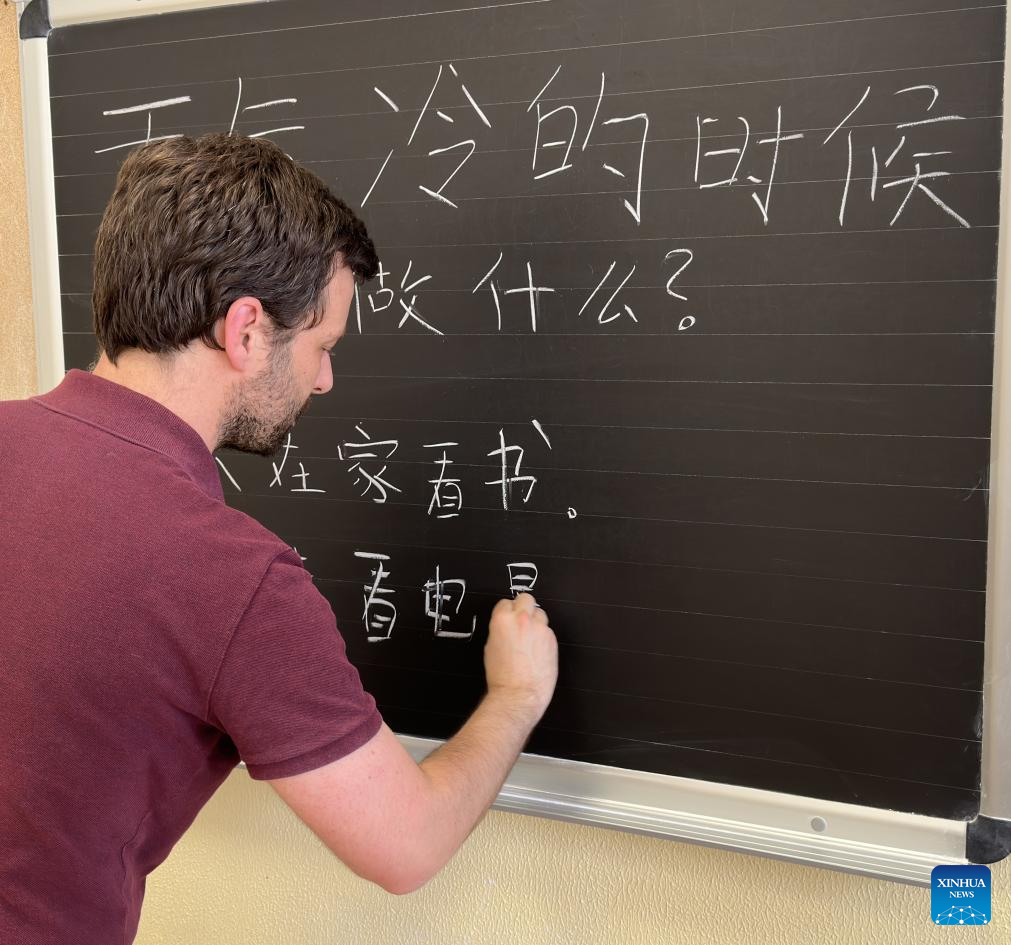 天气冷的时候
做什么?
在家看书。
看电
XINHUA
NEWS